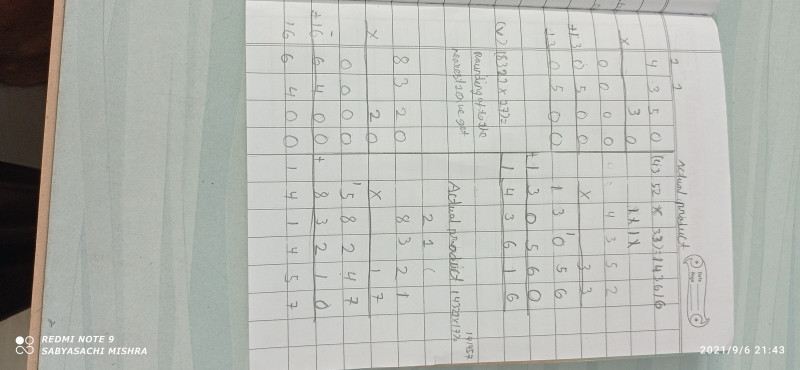 Actual product
4 3 5 0
(4352 × 33) = 143616
× 3 0
4 3 5 2
0 0 0 0
× 3 3
+1 3 0 5 0 0
1 3 0 5 6
1 3 0 5 0 0
+1 3 0 5 6 0
1 4 3 6 1 6
(v)
rounding
nearest
Actual product
8 3 2 0
8 3 2 1
× 2 0
× 1 7
0 0 0 0
5 8 2 4 7
+1 6 6 4 0 0
+ 8 3 2 1 0
1 6 6 4 0 0
1 4 1 4 5 7
141457
REDMI NOTE 9
SABYASACHI MISHRA
2021/9/6 21:43